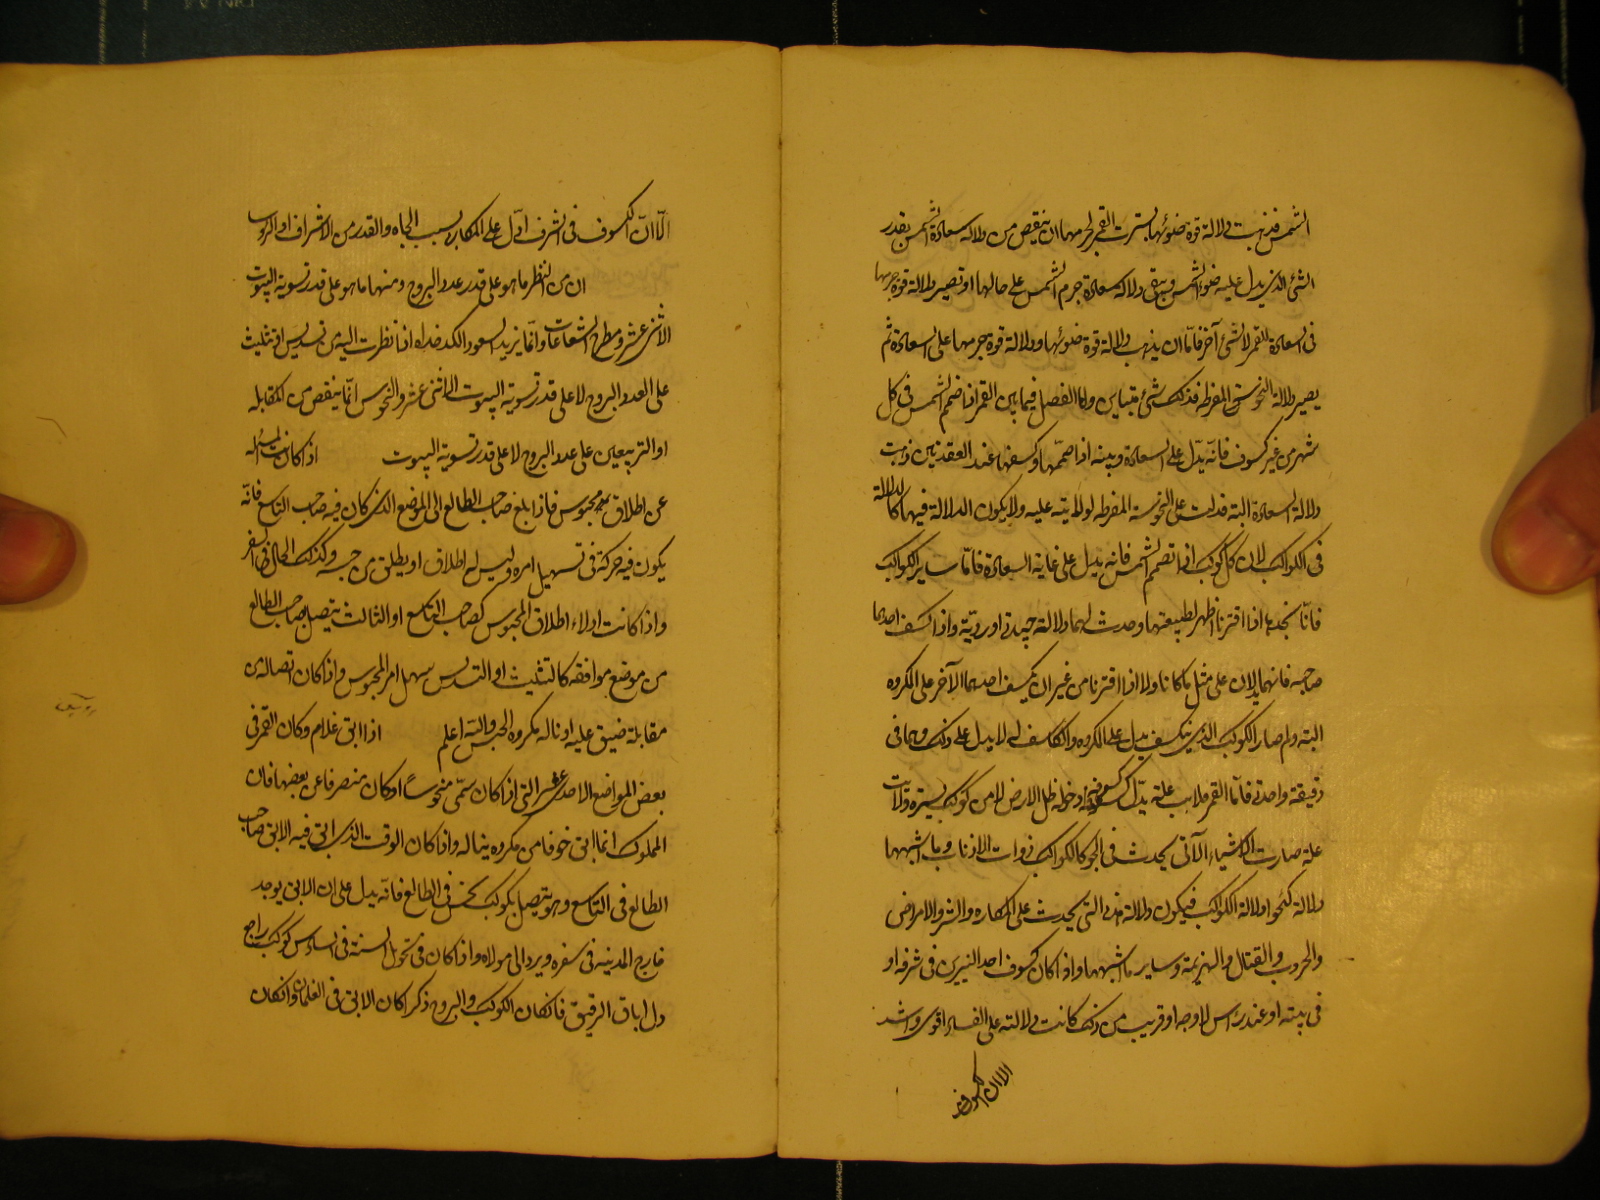 الشمس فذهبت دلالة قوة ضوئها بسترت القمر لجرمها ان ينقص من دلالة سعادة الشمس بقدر
الشئ الذى يدل عليه ضوء الشمس ويبقى دلالة سعادة جرم الشمس على حالها او تصير دلالة قوة جرمها
فى السعادة للقمر لا لشئ آخر فاما ان يذهب دلالة قوة ضوئها ودلالة قوة جرمها على السعادة ثم
يصير دلالة النحوسة المفرطة فذلك شئ متباين وانما الفصل فيما بين القمر اذا ضم الشمس فى كل
شهر من غير كسوف فانه يدل على السعادة وبينه اذا ضمها وكسفها عند العقدتين ذهبت
دلالة السعادة البتة فدلت على النحوسة المفرطة لولايته عليه ولا يكون الدلالة فيها كالدلالة
فى الكواكب لان كل كوكب اذا تصمم الشمس فانه يدل على غاية السعادة فاما سائر الكواكب
فانا نجدها اذا اقترنا ظهر لطبيعتها وحدث لهما دلالة جيدة او ردية واذا كسف احدهما
صاحبه فانهما يدلان على مثل ما كانا ولا اذا اقترنا من غير ان يكسف احدهما الآخر على المكروه
البتة ولم صار الكوكب الذى ينكسف يدل على المكروه والكاسف له لا يدل على ذلك وهما فى
دقيقة واحدة فاما القمر فلاية علة يدل كسوفه ودخوله ظل الارض لا من كوكب يستره ولاية
علة صارت الاشياء الآتى يحدث فى الجو كالكواكب ذوات الاذناب وما اشبهها
دلالة كنحو دلالة الكواكب فيكون دلالة هذه التى يحدث على المكاره والشر والامراض
والحروب والقتال والهزيمة وساير ما اشبهها واذا كان كسوف احد النيرين فى شرفه او
فى بيته او عند رأس الاوجه او قريب من ذلك كانت دلالته على الفساد اقوى واشد
الا ان الكسوف
الا ان الكسوف فى الشرف ادل على المكاره بسبب الجاه والقدر من الاشراف او الرؤس
ان من النظر ما هو على قدر عدد البروج ومنها ما هو على قدر تسوية البيوت
الاثنى عشر ومطرح الشعاعات وانما يزيد السعود الكدخداه اذا نظرت اليه من تسديس او تثليث
على العدد البروج لا على قدر تسوية البيوت الاثنى عشر والنحوس انما ينقص من المقابلة
او التربيعين على عدد البروج لا على قدر تسوية البيوت اذا كانت المسئلة
عن اطلاق محبوس فاذا بلغ صاحب الطالع الى الموضع الذى كان فيه صاحب التاسع فانه
يكون فيه حركة فى تسهيل امره وليس له اطلاق او يطلق من حبسه وكذلك الحال فى السفر
واذا كانت ادلاء اطلاق المحبوس كصاحب التاسع او الثالث يتصل بصاحب الطالع
من موضع موافقة كالتثليث او التسديس سهل امر المحبوس واذا كان اتصاله من
مقابلة ضيق عليه او ناله مكروه الحبس والله اعلم اذا ابق غلام وكان القمر فى
بعض المواضع الاحد عشر التى اذا كان سمى منحوسا او كان منصرفا عن بعضها فان
المملوك انما ابق خوفا من مكروه يناله واذا كان الوقت الذى ابق فيه الابق صاحب
الطالع فى التاسع وهو يتصل بكوكب نحس فى الطالع فانه يدل على ان الابق يوجد
خارج المدينة فى سفره ويرد الى مولاه واذا كان فى تحويل السنة فى السادس كوكب راجع
دل اباق الرقيق فان كان الكوكب والبروج ذكرا كان الابق فى الغلمان وان كان